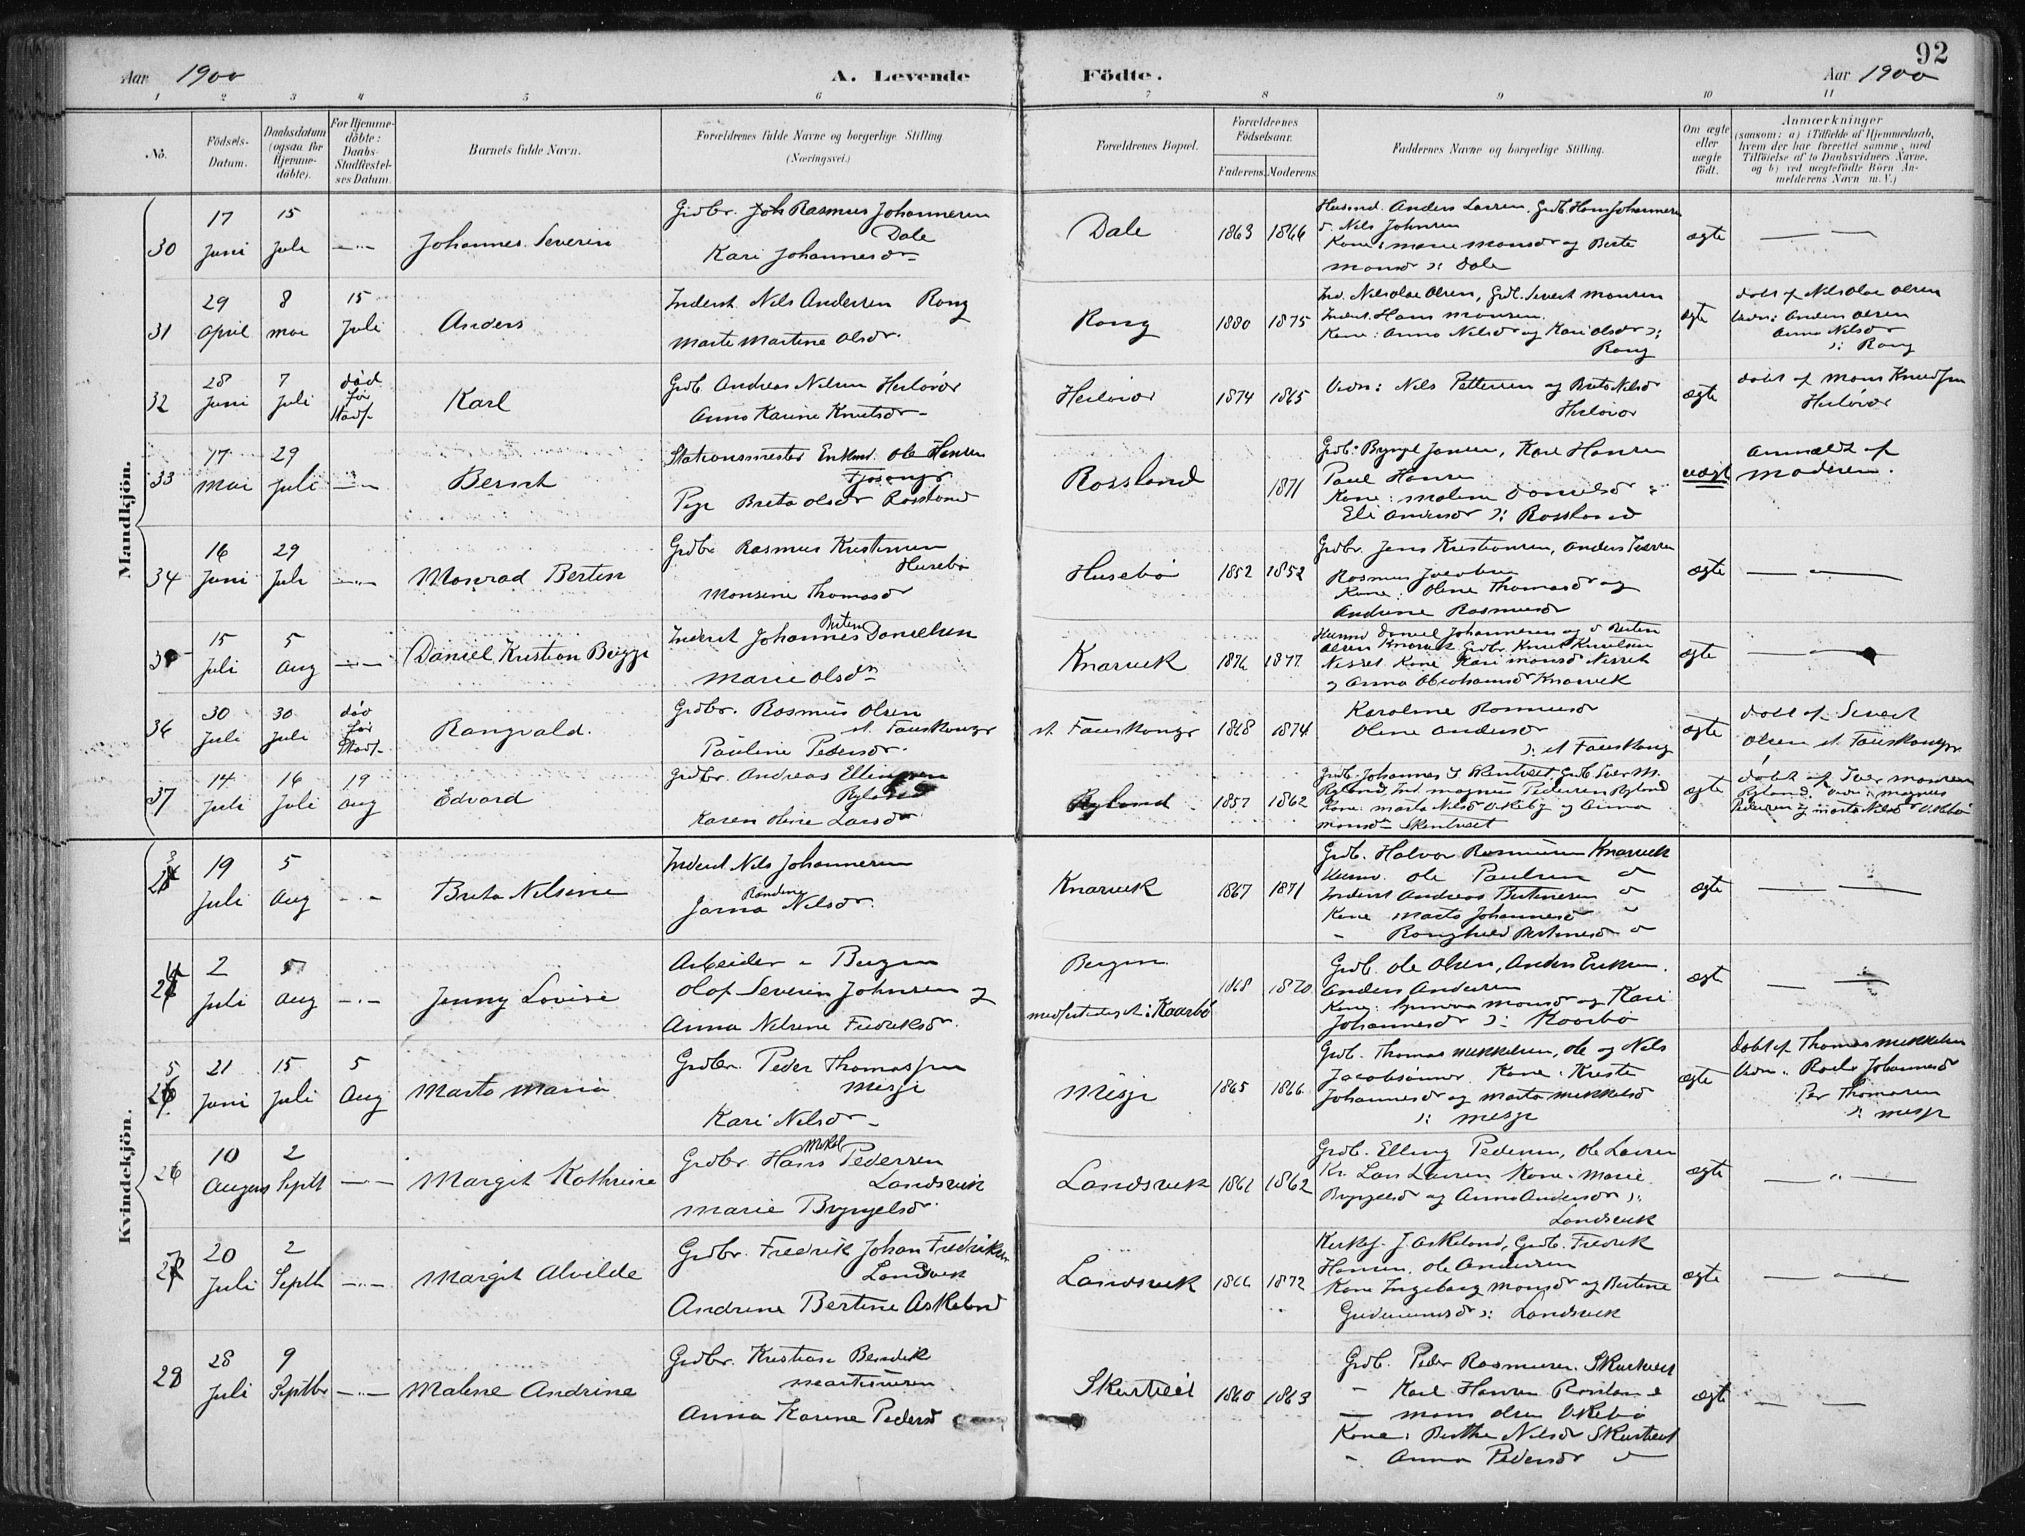 92
Aar 1900
A. Levende
Födte.
Aar 1900
1 2 3 4 5 6 7 8 9 10 11
No.
Födsels-
Datum.
Daabsdatum
(ogsaa for
Hjemme-
döbte).
For Hjemme-
döbte:
Daabs-
Stadfæstel-
ses Datum.
Barnets fulde Navn.
Forældrenes fulde Navne og borgerlige Stilling
(Næringsvei.)
Forældrenes Bopæl.
Forældrenes
Födselsaar.
Faderens.
Moderens.
Faddernes Navne og borgerlige Stilling.
Om ægte
eller
uægte
födt.
Anmærkninger
(saasom: a) i Tilfælde af Hjemmedaab,
hvem der har forrettet samme, med
Tilföielse af to Daabsvidners Navne,
og b) ved uægtefödte Börn An-
melderens Navn m. V.)
Mandkjön.
30
17
Juni
15
Juli
Johannes Severin
Grdbr. Rasmus Johannesen
Dale
Kari Johannesdr
Dale
1863 1866
Husmd. Anders Larsen, Grdb. Hans Johannesen
Nils Johnsen
Kone: Marie Monsdr og Berte
Monsdr ): Dale
ægte
31
29
April
8
Mai
15
Juli
Anders
Inderst. Nils Andersen Rong
Marte Martine Olsdr.
Rong
1880 1875
Ind. Nilsolai Olsen, Grdb. Sivert Monsen
Inderst. Hans Monsen.
Kone: Anna Nilsdr og Kari Olsdr ):
Rong
ægte
döbt af Nilsolai Olsen
Vidn: Anders Olsen
Anna Nilsdr
): Rong
32
28
Juni
7
Juli
död
för
Stadf.
Karl
Grdb. Andreas Nilsen Herlövär
Anna Karine Knutsdr
Herlövär
1874 1865
Vidn: Nils Pettersen og Brita Nilsdr
Herlövär
ægte
döbt af Mons Knudsen
Herlövär
33
17
Mai
29
Juli
Bernt
Stationsmester Enkem. Ole Hansen
Fjosanger
Pige Brita Olsdr Rossland
Rossland
1871
Grdb: Brynjel Jansen, Karl Hansen
Paul Hansen
Kone: Malene Danielsdr
Eli Andersdr ): Rossland
uægt
anmeldt af
moderen.
34
16
Juni
29
Juli
Monrad Bertin
Grdbr Rasmus Kristensen
Husebö
Monsine Thomasdr
Husebö
1852 1852
Grdbr. Jens Kristiansen, Anders Iversen
Rasmus Jacobsen
Kone: Oline Thomasdr og
Andrine Rasmusdr
ægte
35
15
Juli
5
Aug
Daniel Kristian Brigge
Inderst Johannes Danielsen
Marie Olsdr
Knarvik
1876 1877
Husmd Daniel Johannesen og Bertin
Olsen Knarvik Grdbr. Knut Knutsen
Nesset Kone Kari Monsdr Nesset
og Anna Abrahamsdr Knarvik
ægte
36
30
Juli
30
Juli
död
för
Stadf.
Rangvald.
Grdbr. Rasmus Olsen
st. Fauskanger
Pauline Pedersdr.
st. Fauskanger
1868 1874
Karoline Rasmusdr
Oline Andersdr
): st Fauskang
ægte
döbt af Sivert
Olsen st. Fauskanger
37
14
Juli
16
Juli
19
Aug
Edvard
Grdbr. Andreas Ellingsen
Ryland
Karen Oline Larsdr
Ryland
1857 1862
Grdb. Johannes I Skurtveit, Grdb Iver M.
Ryland, Ind. Magnus Pedersen Ryland
Kone: Marta Nilsdr Vikebö og Anna
Monsdr Skurtveit
ægte
döbt af Iver Monsen
Ryland. Vidn: Magnus
Pedersen og Marta Nilsdr Vikebö
Kvindekjön.
23
19
Juli
5
Aug
Brita Nilsine
Inderst Nils Johannesen
Randine
Jorna Nilsdr.
Knarvik
1867 1871
Grdb. Halvor Rasmusen Knarvik
Husmd. Ole Paulsen
Inderst Andreas Bertinesen
Kone Marta Johannesdr
Ranghild Bertinesdr
ægte
24
2
Juli
5
Aug
Jenny Lovise
Arbeider i Bergen
Olaf Severin Johnsen og
Anna Nilsine Fredriksdr.
Bergen
1868 1870
Grdb. Ole Olsen, Anders Eriksen.
Anders Andersen
Kone: Gunna Monsdr og Kari
Johannesdr ): Kaarbö
ægt
25
21
Juni
15
Juli
5
Aug
Marta Maria
Grdbr. Peder Thomassen
Misje
Kari Nilsdr
Misje
1865 1866
Grdb. Thomas Mikkelsen, Ole og Nils
Jacobsönner. Kone: Kristi
Johannesdr og Marta Mikkelsdr
): Misje
ægte
Döbt af Thomas Mikkelsen
Vidn: Johannesdr
Per Thomassen
): Misje
26
10
August
2
Septb
Margit Kathrine
Grdbr. Hans Mikal Pedersen
Landsvik
Marie Brynjelsdr.
Landsvik
1861 1862
Grdb. Elling Pedersen, Ole Larsen
Kr. Lars Larsen Kone: Marie
Brynjelsdr og Anna Andersdr ):
Landsvik
ægte
27
20
Juli
2
Septb
Margit Alvilde
Grdbr. Fredrik Johan Fredriksen
Landsvik
Andrine Bertine Askeland
Landsvik
1866 1872
Kirkesj. J. Askeland, Grdb. Fredrik
Hansen, Ole Andersen
Kone Ingeborg Monsdr og Bertine
Gudmunsdr ): Landsvik
ægte
28
28
Juli
9
Septbr
Malene Andrine
Grdbr. Kristian Bendik
Martinusen
Anna Karine Pedersd
Skurtveit
1860 1863
Grdb. Peder Rasmusen. Skurtveit
Karl Hansen Rossland
Mons Olsen Vikebö
Kone: Berthe Nilsdr Skurtveit
Anna Pedersdr
ægte